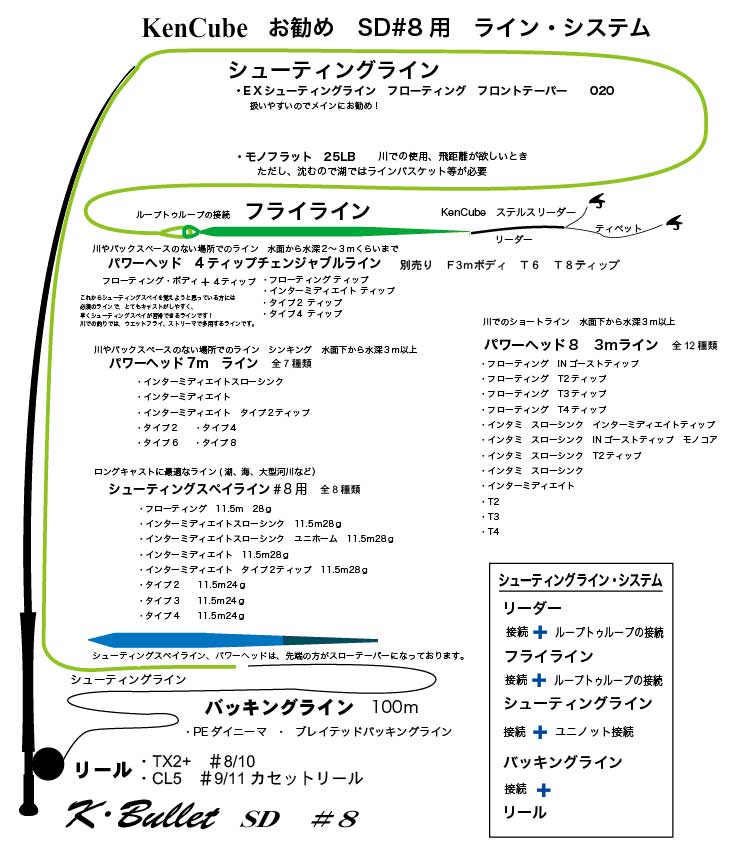 KenCube　お勧め　SD#8用　ライン・システム
シューティングライン
・EXシューティングライン　フローティング　フロントテーパー　　020
扱いやすいのでメインにお勧め！
・モノフラット　25LB　　川での使用、飛距離が欲しいとき
ただし、沈むので湖ではラインバスケット等が必要
ループトゥループの接続
フライライン
KenCube　ステルスリーダー
リーダー
ティペット
川やバックスペースのない場所でのライン　水面から水深2～3mくらいまで
パワーヘッド　4ティップチェンジャブルライン　別売り　F3mボディ　T6　T8ティップ
フローティング・ボディ＋4ティップ
・フローティングティップ
・インターミディエイトティップ
・タイプ2ティップ
・タイプ4ティップ
これからシューティングスペイを覚えようと思っている方には
必須のラインで、とてもキャストがしやすく、
早くシューティングスペイが習得できるラインです！
川での釣りでは、ウエットフライ、ストリーマで多用するラインです。
川やバックスペースのない場所でのライン　シンキング　水面下から水深3m以上
パワーヘッド7m　ライン　全7種類
・インターミディエイトスローシンク
・インターミディエイト
・インターミディエイト　タイプ2ティップ
・タイプ2　・タイプ4
・タイプ6　・タイプ8
川でのショートライン　水面下から水深3m以上
パワーヘッド8　3mライン　全12種類
・フローティング　INゴーストティップ
・フローティング　T2ティップ
・フローティング　T3ティップ
・フローティング　T4ティップ
・インタミ　スローシンク　インターミディエイトティップ
・インタミ　スローシンク　INゴーストティップ　モノコア
・インタミ　スローシンク　T2ティップ
・インタミ　スローシンク
・インターミディエイト
・T2
・T3
・T4
ロングキャストに最適なライン(湖、海、大型河川など)
シューティングスペイライン#8用　全8種類
・フローティング　11.5m　28g
・インターミディエイトスローシンク　11.5m28g
・インターミディエイトスローシンク　ユニホーム　11.5m28g
・インターミディエイト　11.5m28g
・インターミディエイト　タイプ2ティップ　11.5m28g
・タイプ2　　11.5m24g
・タイプ3　　11.5m24g
・タイプ4　　11.5m24g
シューティングスペイライン、パワーヘッドは、先端の方がスローテーパーになっております。
シューティングライン
バッキングライン　100m
・PEダイニーマ　・　ブレイテッドバッキングライン
リール
・TX2+　#8/10
・CL5　#9/11カセットリール
K・Bullet　SD　#8
シューティングライン・システム
リーダー
接続＋ループトゥループの接続
フライライン
接続＋ループトゥループの接続
シューティングライン
接続＋ユニノット接続
バッキングライン
接続＋
リール